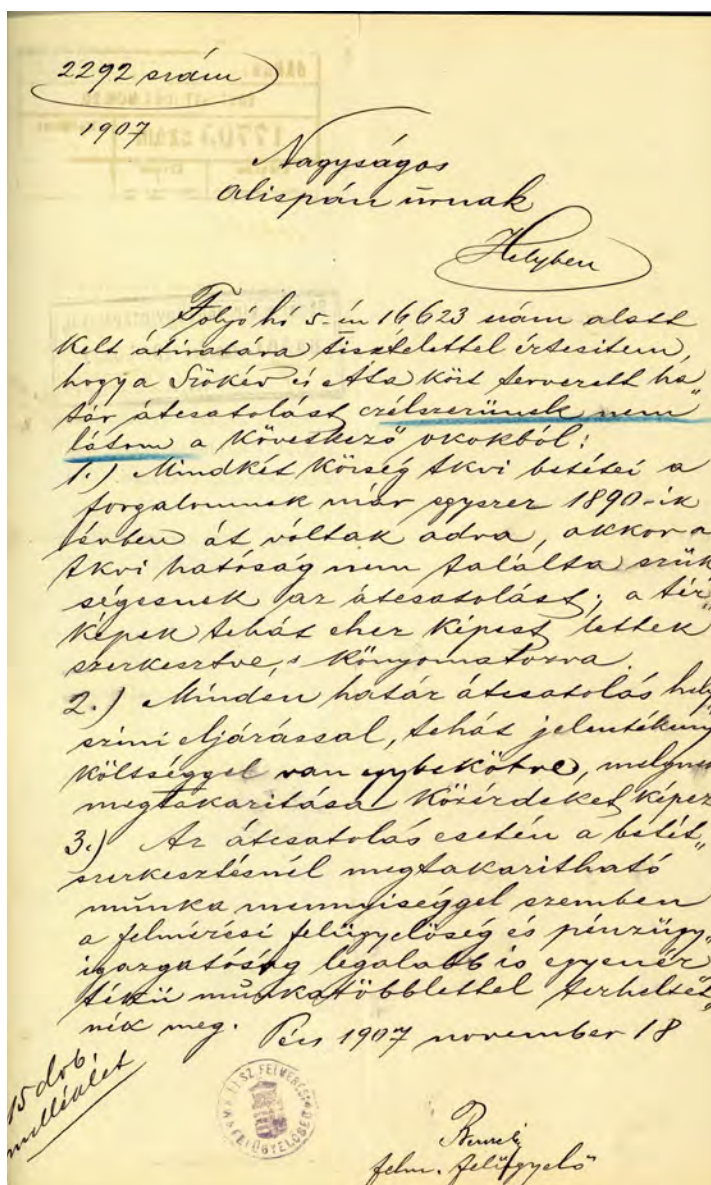 2292 szám
1907
Nagyságos
alispán úrnak
Helyben
Folyó hó 5-én 16623 szám alatt
kelt átiratára tisztelettel értesitem,
hogy a Szőkéd és Áta közt tervezett ha„
tár átcsatolást czélszerünek nem
látom a következő okokból:
1.) Mindkét község tkvi betétei a
forgalomnak már egyszer 1890-ik
évben át vóltak adva, akkor a
tkvi hatóság nem találta szük
ségesnek az átcsatolást; a tér„
képek tehát ehez képest lettek
szerkesztve, s könyomatozva.
2.) Minden határ átcsatolás hely„
szini eljárással, tehát jelentékeny
költséggel van egybekötve, melynek
megtakaritása közérdeket képez
3.) Az átcsatolás esetén a betét„
szerkesztésnél megtakaritható
munka mennyiséggel szemben
a felmérési felügyelőség és pénzügy„
igazgatóság legalább is egyenér
tékü munkatöbblettel terheltet„
nék meg. Pécs 1907 november 18
15 drb.
melléklet
felm. felügyelő